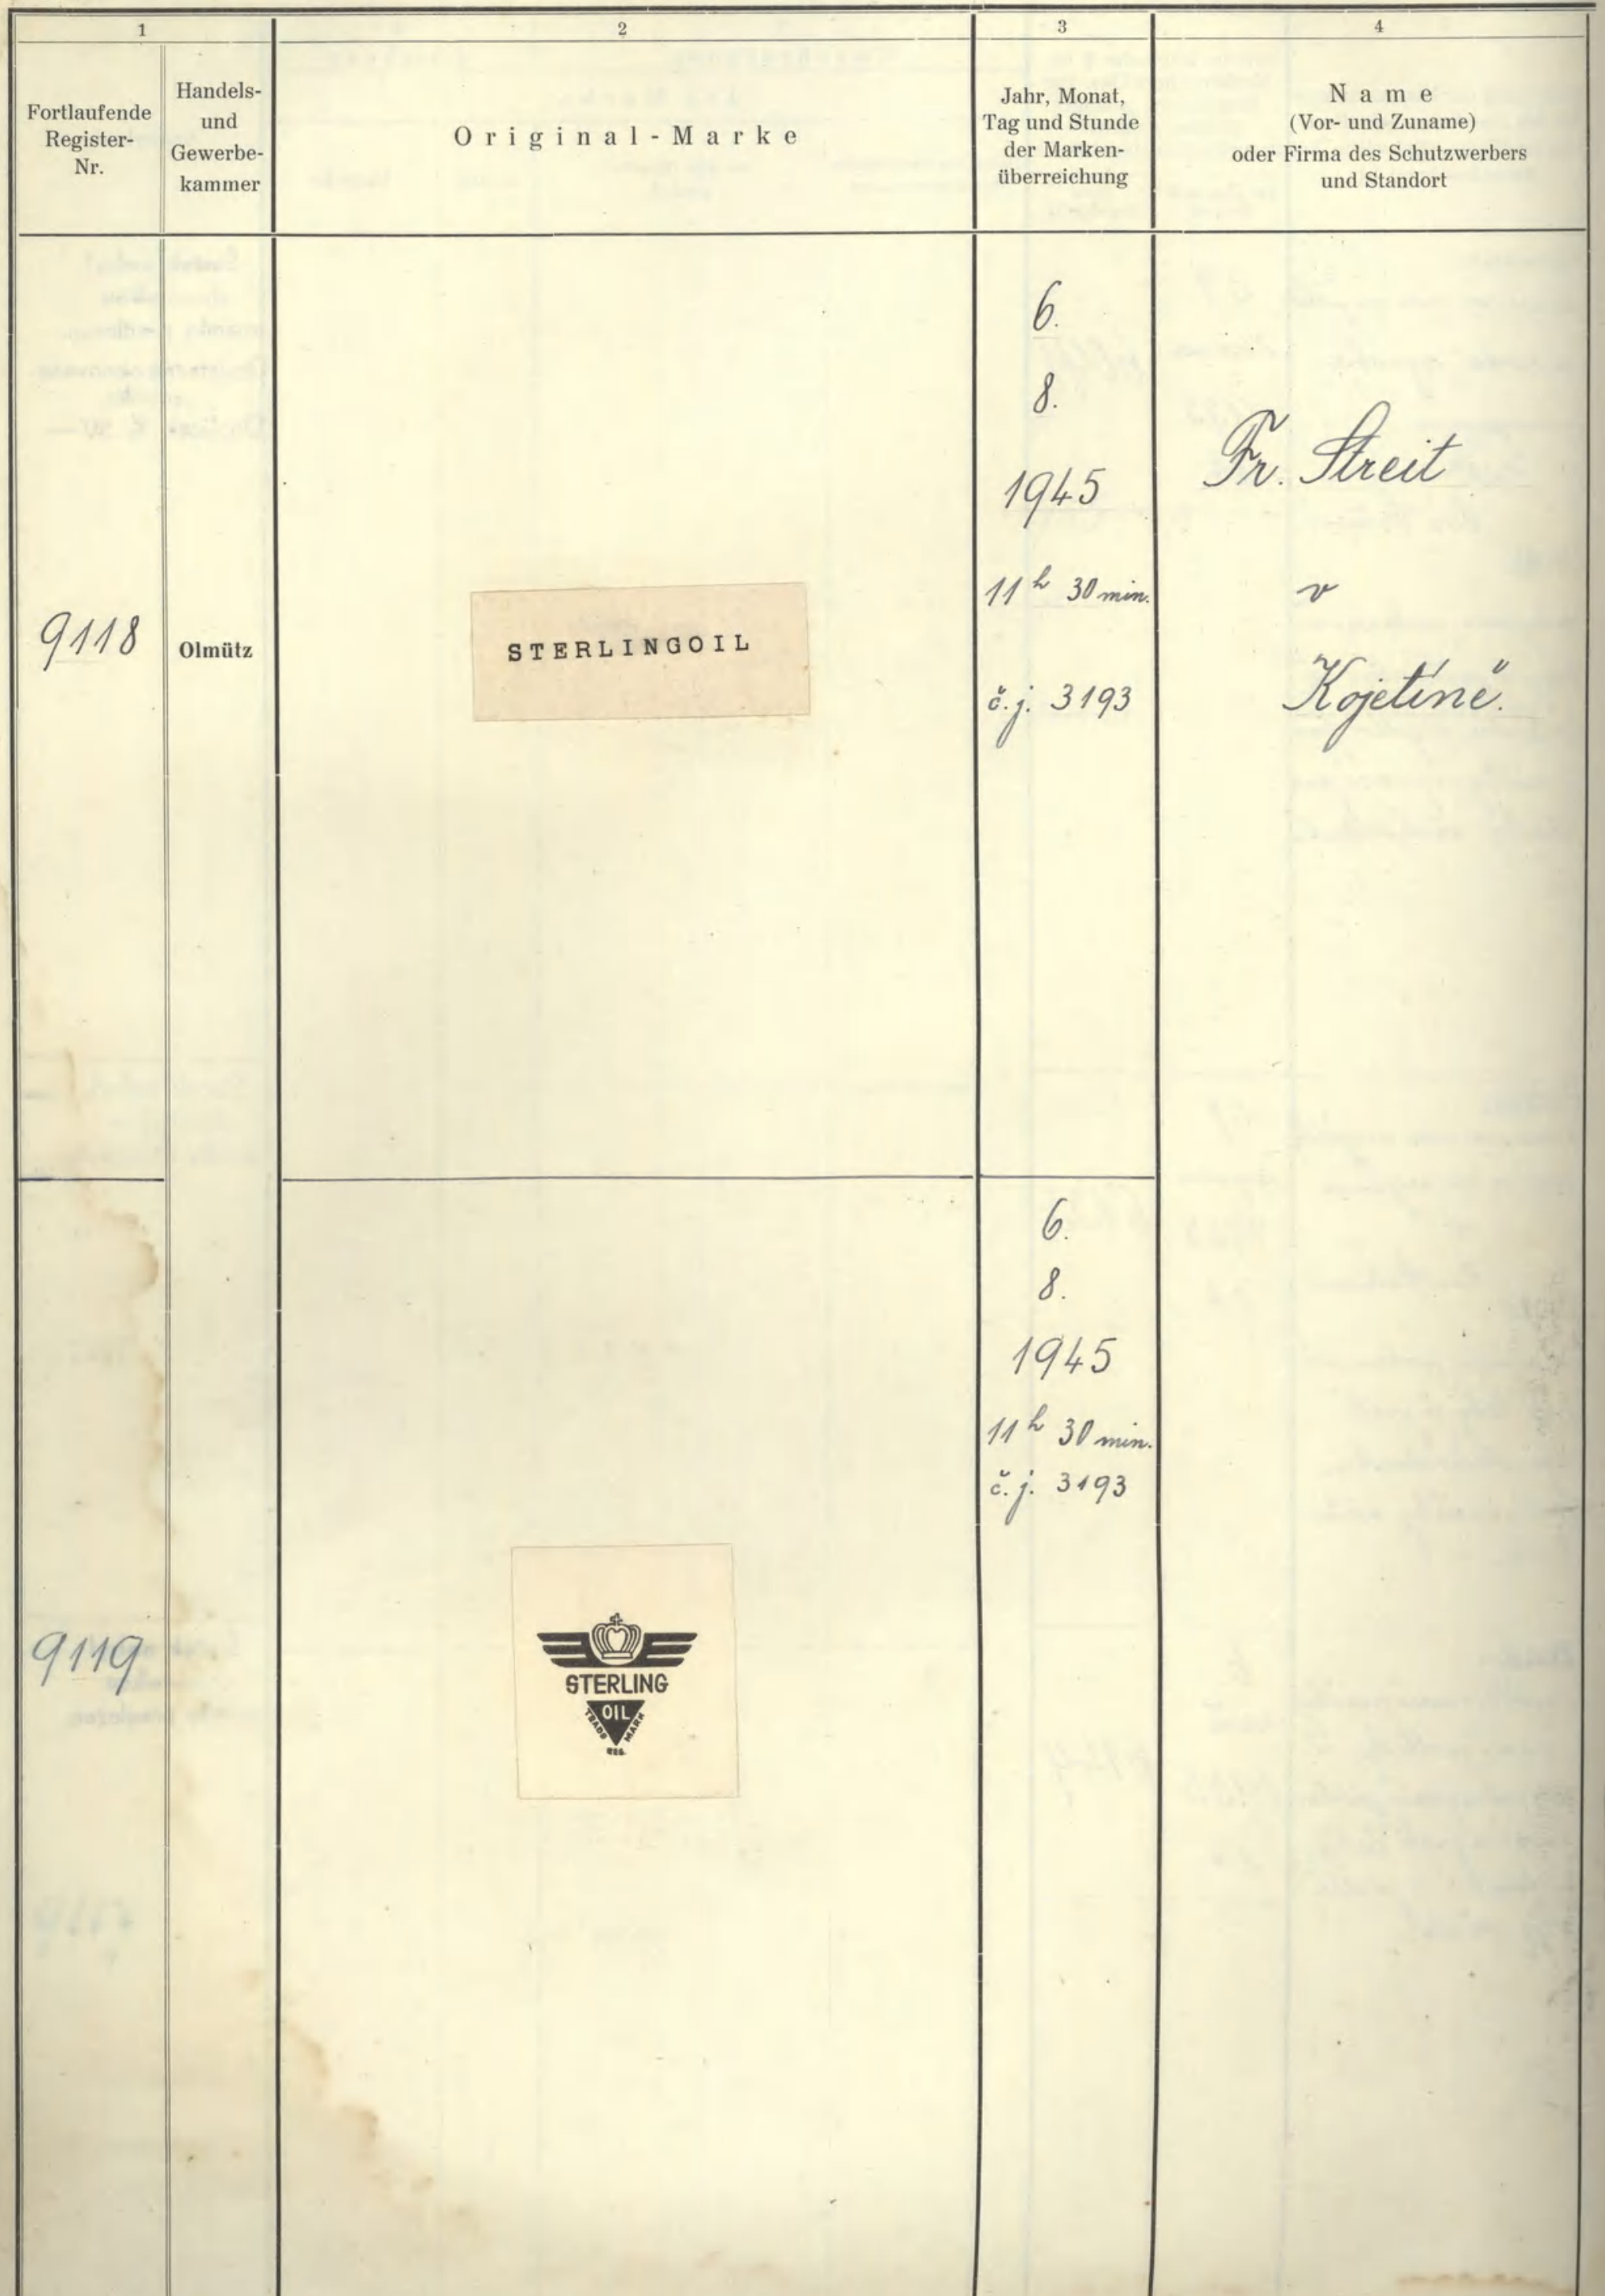 1
2
3
4
Fortlaufende
Register-
Nr.
Handels-
und
Gewerbe-
kammer
Original-Marke
Jahr, Monat,
Tag und Stunde
der Marken-
überreichung
Name
(Vor- und Zuname)
oder Firma des Schutzwerbers
und Standort
9118
Olmütz
STERLINGOIL
6.
8.
1945
11 h 30 min.
č.j. 3193
Fr. Streit
v
Kojetíně.
9119
STERLING
OIL
TRADE MARK
REG.
6.
8.
1945
11 h 30 min.
č.j. 3193